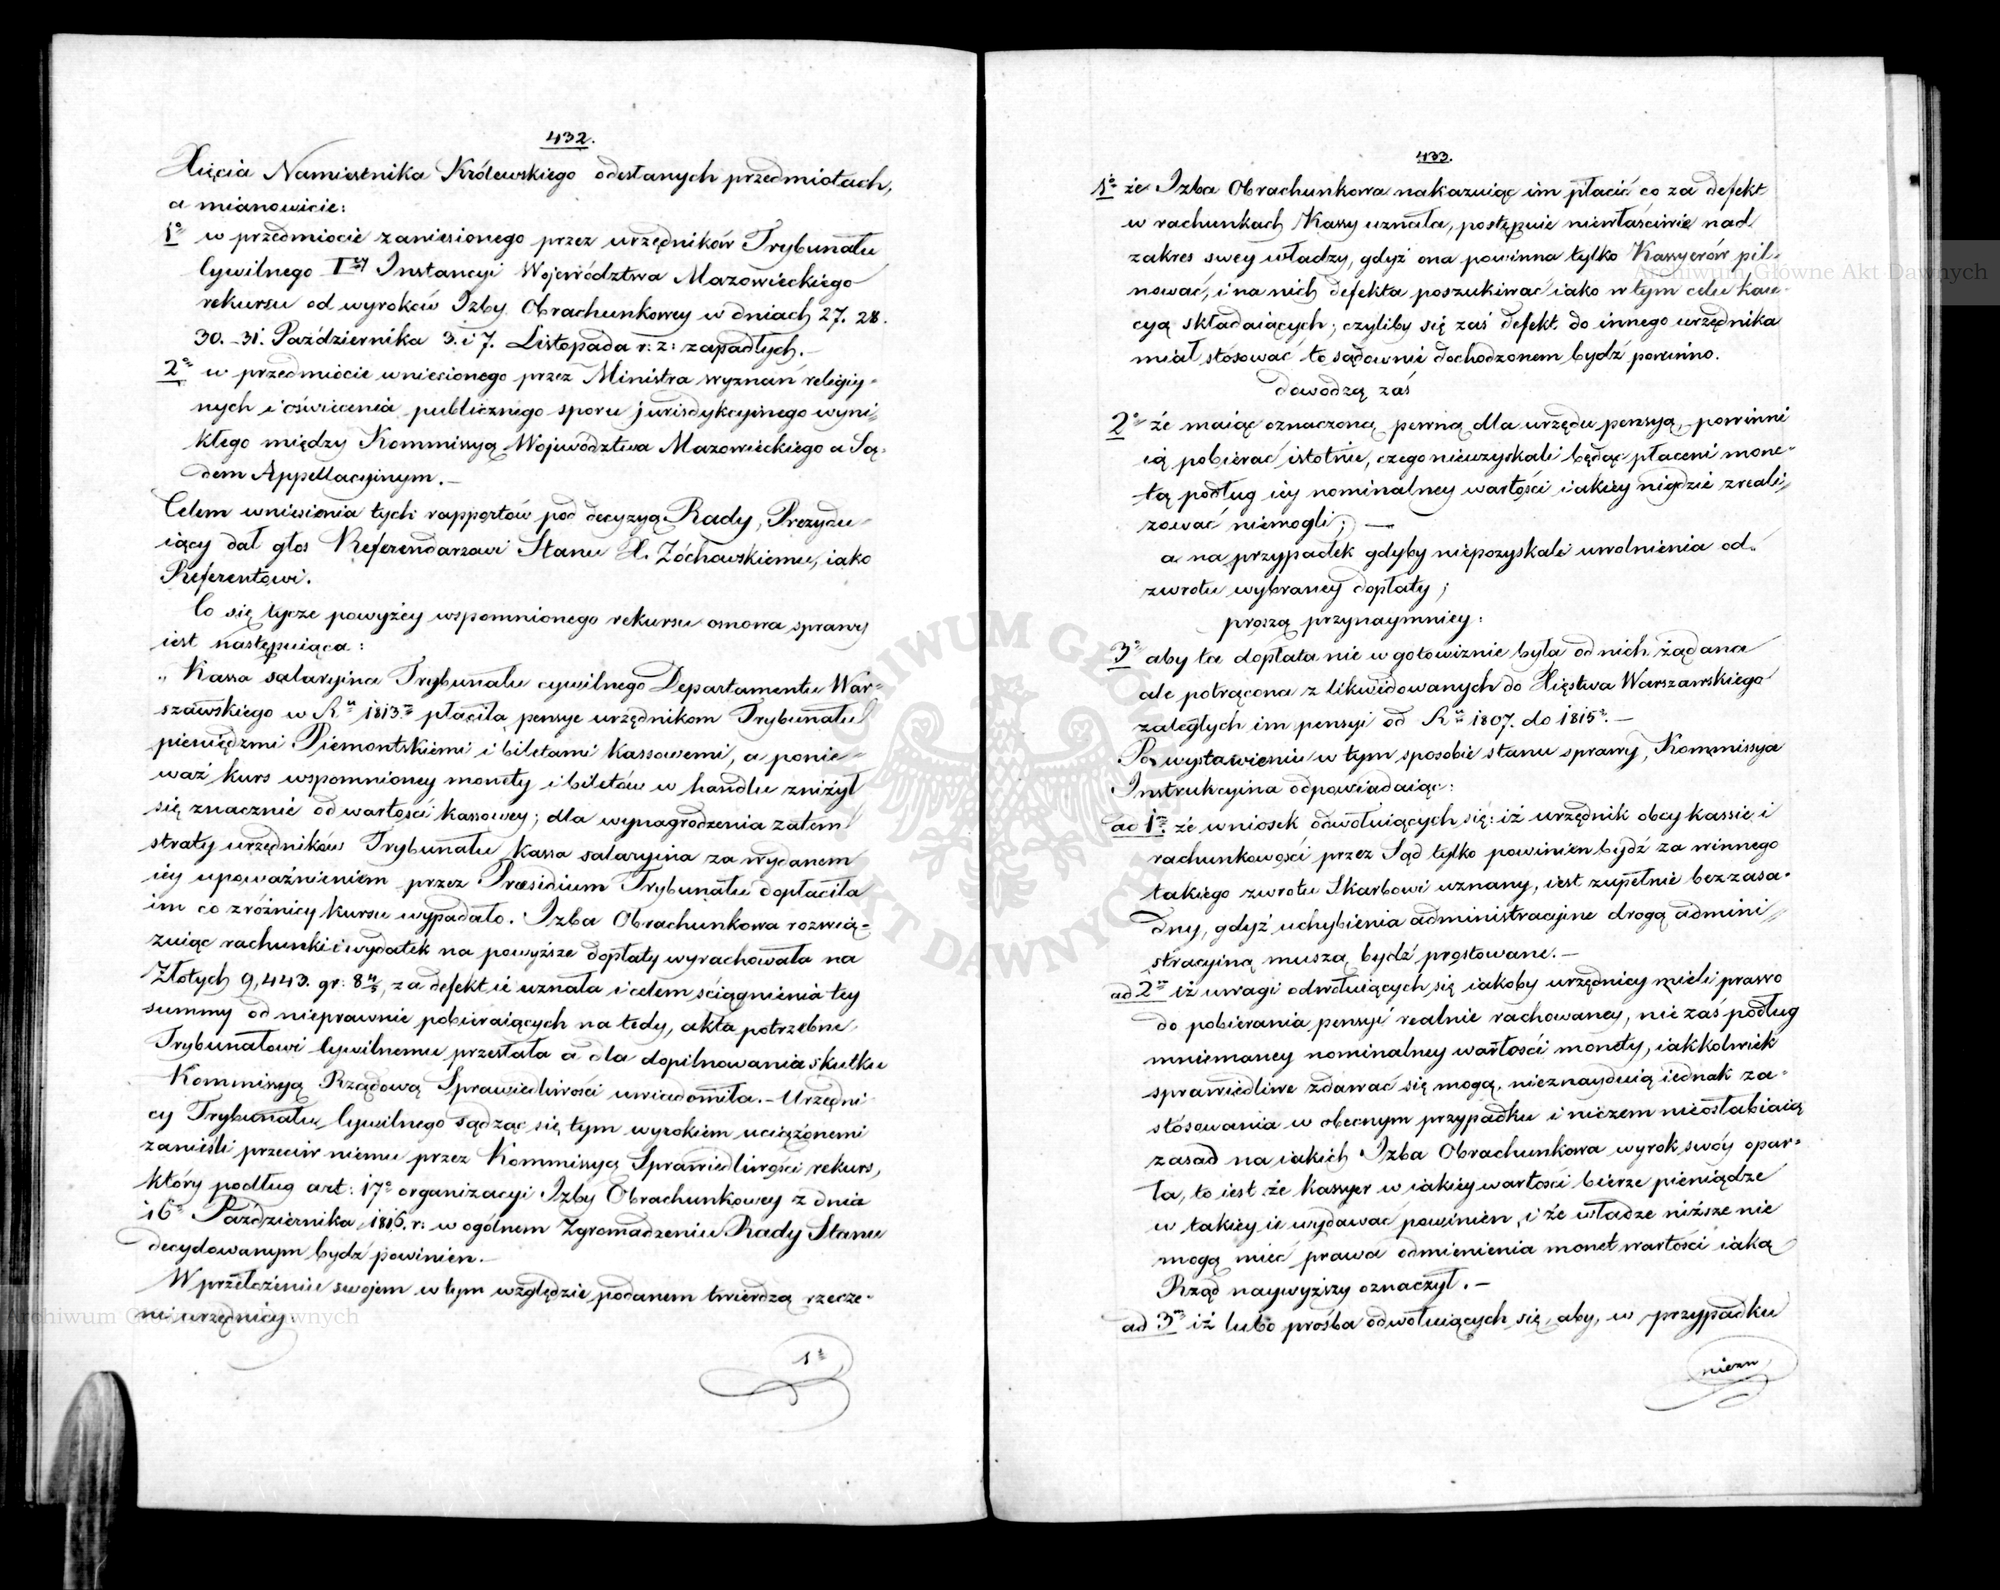 432.
Xięcia Namiestnika Królewskiego odesłanych przedmiotach,
a mianowicie:
1o w przedmiocie zaniesionego przez urzędników Trybunału
Cywilnego Iszy Instancyi Województwa Mazowieckiego
rekursu od wyroków Izby Obrachunkowey w dniach 27. 28.
30. 31. Października 3. i 7. Listopada r: z: zapadłych.–
2o w przedmiocie wniesionego przez Ministra wyznań religiy-
nych i oświecenia publicznego sporu jurisdykcyinego wyni-
kłego między Kommissyą Województwa Mazowieckiego a Są-
dem Appellacyinym.–
Celem wniesienia tych rapportów pod decyzyą Rady, Prezydu-
iący dał głos Referendarzowi Stanu X. Żóchowskiemu, iako
Referentowi.
Co się tycze powyżey wspomnionego rekursu osnowa sprawy
iest następuiąca:
„Kassa salaryina Trybunału cywilnego Departamentu War-
szawskiego w Ru 1813m płaciła pensye urzędnikom Trybunału
pieniędzmi Piemontskiemi i biletami kassowemi, a ponie-
waż kurs wspomnioney monety i biletów w handlu zniżył
się znacznie od wartości kassowey; dla wynagrodzenia zatem
straty urzędników Trybunału Kassa salaryina za wydanem
iey upoważnieniem przez Præsidium Trybunału dopłaciła
im co z różnicy kursu wypadało. Izba Obrachunkowa rozwią-
zuiąc rachunki i wydatek na powyższe dopłaty wyrachowała na
Złotych 9,443. gr: 8 4/5, za defekt ie uznała i celem ściągnienia tey
summy od nieprawnie pobieraiących na tedy, akta potrzebne
Trybunałowi Cywilnemu przesłała a dla dopilnowania skutku
Kommissyą Rządową Sprawiedliwości uwiadomiła.– Urzędni-
cy Trybunału Cywilnego sądząc się tym wyrokiem uciążonemi
zanieśli przeciw niemu przez Kommissyą Sprawiedliwości rekurs,
który podług art: 17o organizacyi Izby Obrachunkowey z dnia
16o Października 1816. r: w ogólnem Zgromadzeniu Rady Stanu
decydowanym bydź powinien.–
W przełożeniu swojem w tym względzie podanem twierdzą rzecze-
ni urzędnicy:
1o
433.
1o że Izba Obrachunkowa nakazuiąc im płacić co za defekt
w rachunkach Kassy uznała, postępuie niewłaściwie nad
zakres swey władzy, gdyż ona powinna tylko Kassyerów pil-
nować, i na nich defekta poszukiwać iako w tym celu kau-
cyą składaiących; czyliby się zaś defekt do innego urzędnika
miał stósować to sądownie dochodzonem bydź powinno.
dowodzą zaś
2o że maiąc oznaczoną pewną dla urzędu pensyą, powinni
ią pobierać istotnie, czego nieuzyskali będąc płaceni mone-
tą podług iey nominalney wartości iakiey nigdzie zreali-
zować niemogli; —
a na przypadek gdyby niepozyskali uwolnienia od
zwrotu wybraney dopłaty;
proszą przynaymniey:
3o aby ta dopłata nie w gotowiznie była od nich żądana
ale potrącona z likwidowanych do Xięstwa Warszawskiego
zaległych im pensyi od Ru 1807. do 1815o.–
Po wystawieniu w tym sposobie stanu sprawy, Kommissya
Instrukcyina odpowiadaiąc:
ad 1m że wniosek odwołuiących się: iż urzędnik obcy kassie i
rachunkowości przez Sąd tylko powinien bydź za winnego
takiego zwrotu Skarbowi uznany, iest zupełnie bezzasa-
dny, gdyż uchybienia administracyine drogą admini-
stracyiną muszą bydź prostowane.–
ad 2m iż uwagi odwołuiących się iakoby urzędnicy mieli prawo
do pobierania pensyi realnie rachowaney, nie zaś podług
mniemaney nominalney wartości monety, iakkolwiek
sprawiedliwe zdawać się mogą, nieznayduią iednak za-
stósowania w obecnym przypadku i niczem nieosłabiaią
zasad na iakich Izba Obrachunkowa wyrok swóy opar-
ła, to iest że Kassyer w iakiey wartości bierze pieniądze
w takiey ie wydawać powinien, i że władze niższe nie
mogą mieć prawa odmienienia monet wartości iaką
Rząd naywyższy oznaczył.–
ad 3m iż lubo prośba odwołuiących się, aby, w przypadku
niezu
Archiwum Główne Akt Dawnych